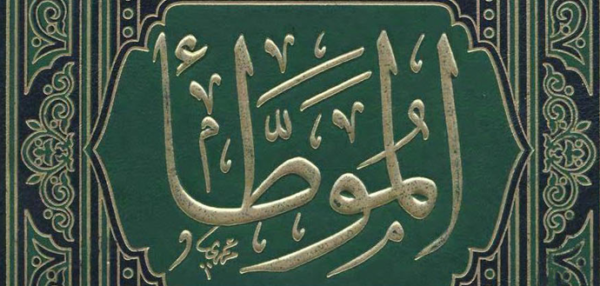 المُوَطَّأ